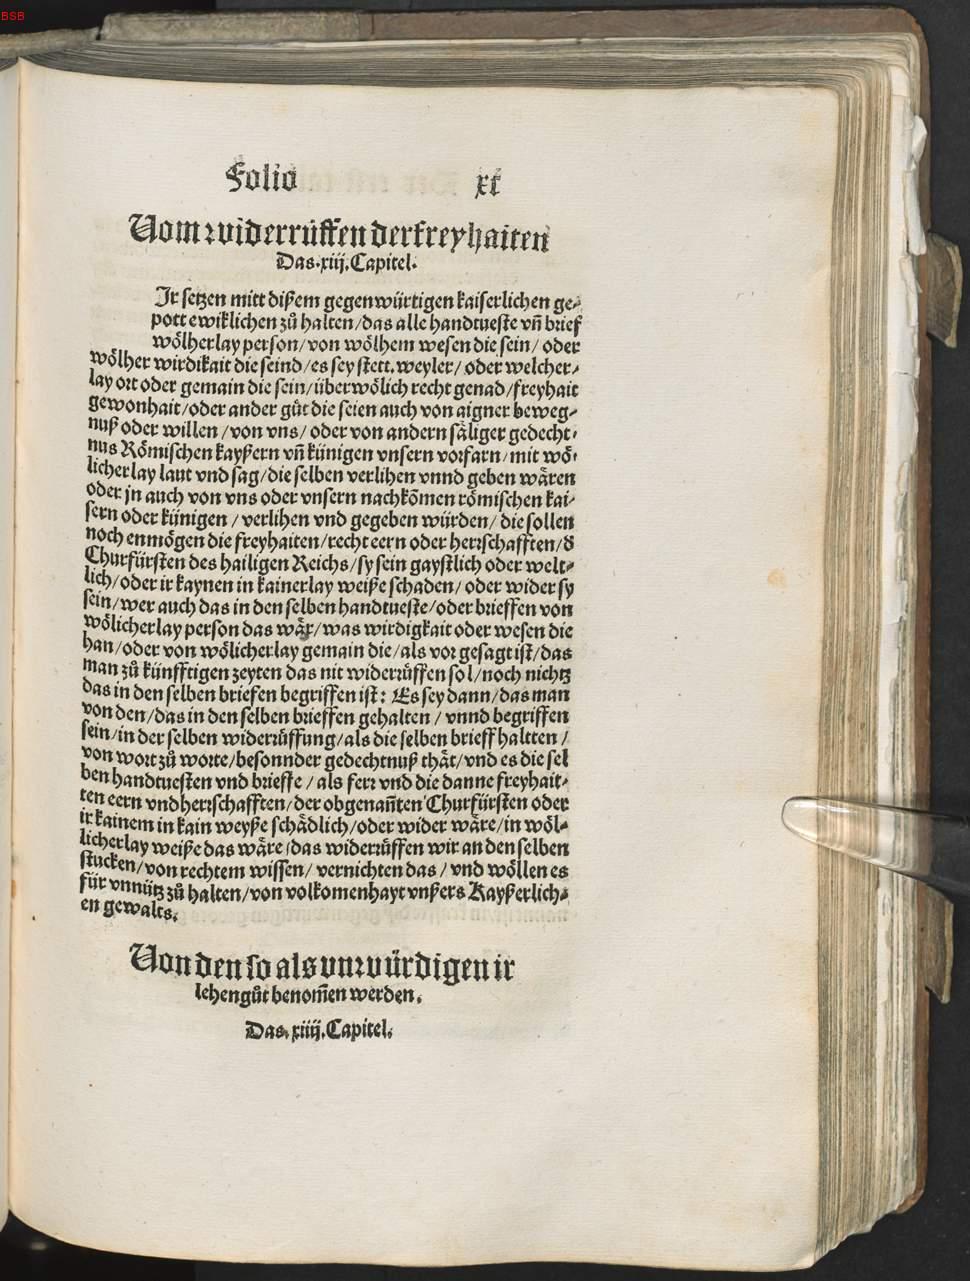 BSB
Folio xi
Vom widerrüffen der freyhaiten
Das .xiij. Capitel.
Ir setzen mitt dißem gegenwürtigen kaiserlichen ge⸗
pott ewiklichen zů halten/das alle handtueste vñ brief
wölherlay person/von wölhem wesen die sein/ oder
wölher wirdikait die seind/es sey stett, weyler/ oder welcher⸗
lay ort oder gemain die sein/über wölich recht genad/freyhait
gewonhait/oder ander gůt die seien auch von aigner beweg⸗
nuß oder willen/von vns/ oder von andern säliger gedecht⸗
nus Römischen kayßern vñ künigen vnsern vorfarn/mit wö⸗
licherlay laut vnd sag/die selben verlihen vnnd geben wären
oder jn auch von vns oder vnsern nachkõmen römischen kai⸗
sern oder künigen/ verlihen vnd gegeben würden/ die sollen
noch enmögen die freyhaiten/recht eern oder herrschafften/d̕
Churfürsten des hailigen Reichs/sy sein gaystlich oder welt⸗
lich/oder ir kaynen in kainerlay weiße schaden/ oder wider sy
sein/wer auch das in den selben handtueste/oder brieffen von
wölicherlay person das wär/was wirdigkait oder wesen die
han/oder von wölicherlay gemain die/als vor gesagt ist/das
man zů künfftigen zeyten das nit widerrůffen sol/noch nichtz
das in den selben briefen begriffen ist: Es sey dann/das man
von den/das in den selben brieffen gehalten/ vnnd begriffen
sein/in der selben widerrůffung/als die selben brieff haltten/
von wort zů worte/besonnder gedechtnuß thät/vnd es die sel
ben handtuesten vnd brieffe/ als ferr vnd die danne freyhait⸗
ten eern vnd herrschafften/der obgenañten Churfürsten oder
ir kainem in kain weyße schädlich/oder wider wäre/in wöl⸗
licherlay weiße das wäre/das widerrůffen wir an den selben
stucken/von rechtem wissen/ vernichten das/ vnd wöllen es
für vnnütz zů halten/von volkomenhayt vnßers Kayßerlich⸗
en gewalts.
Von den so als vnwürdigen ir
lehengůt benom̃en werden.
Das .xiiij. Capitel.